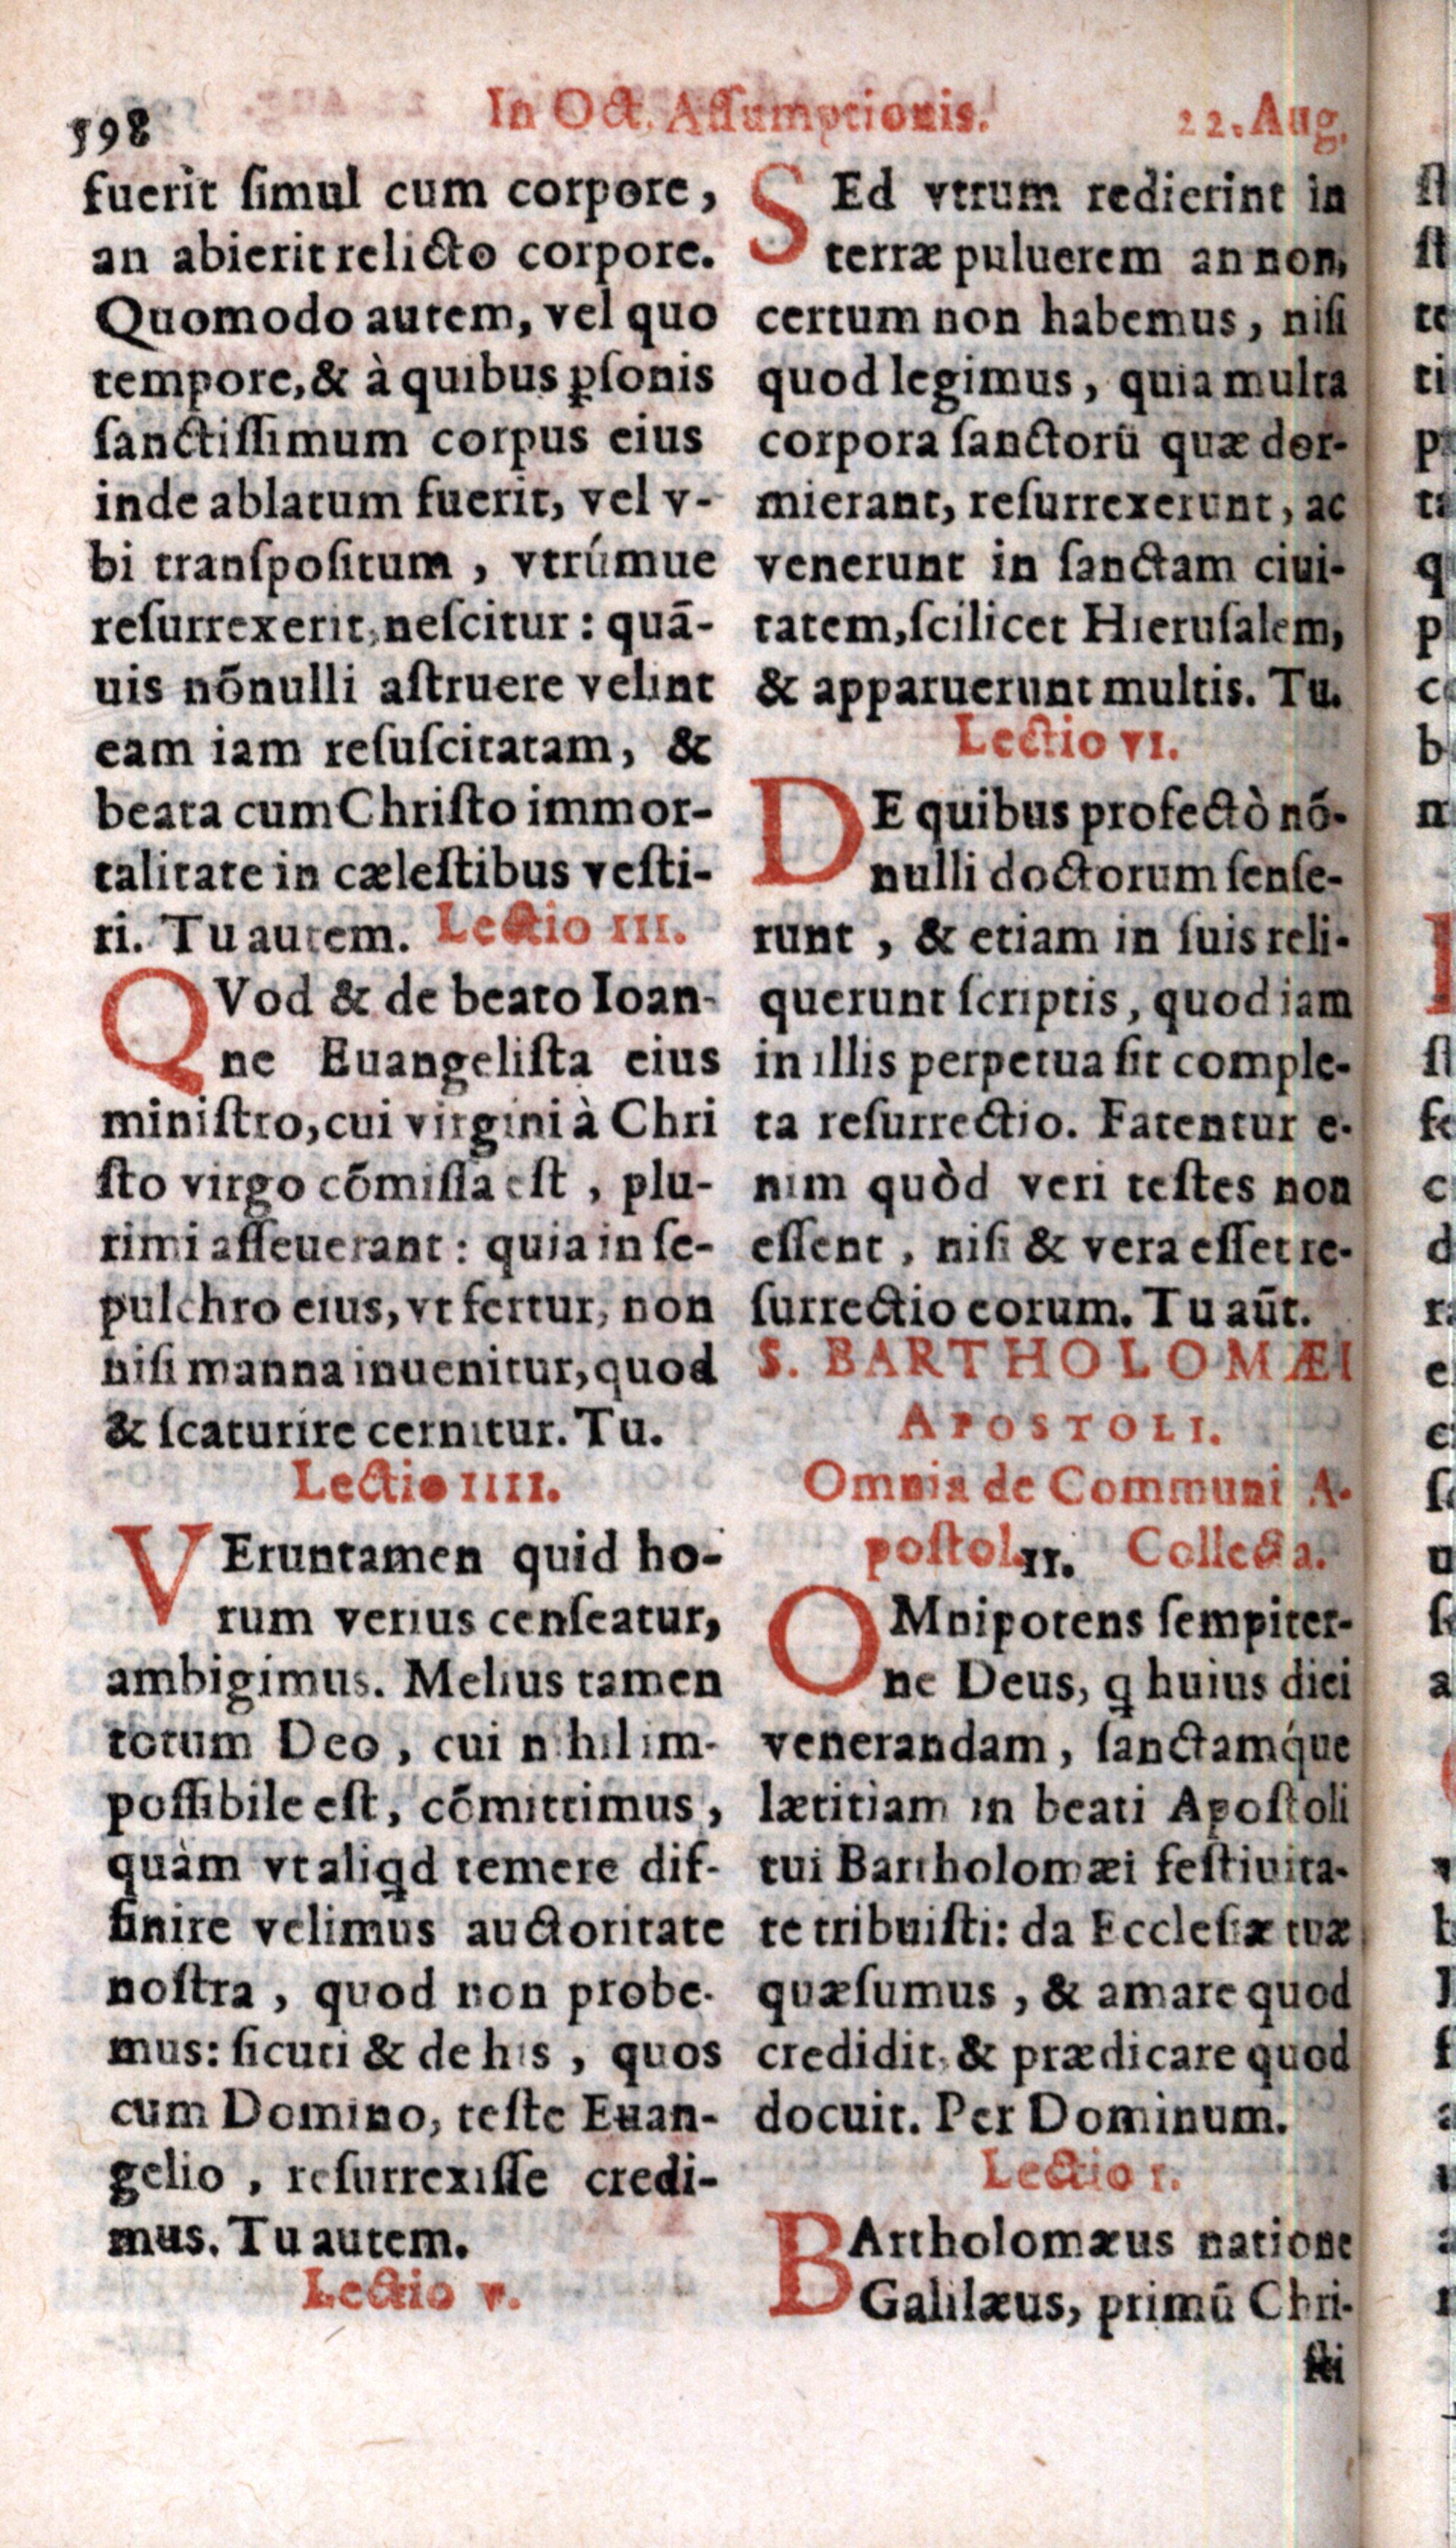 598 In Oct. Aſſumptionis. 22. Aug.
fuerit ſimul cum corpore,
an abierit relicto corpore.
Quomodo autem, vel quo
tempore, & à quibus ꝑſonis
ſanctiſſimum corpus eius
inde ablatum fuerit, vel v-
bi tranſpoſitum, vtrúmue
reſurrexerit, neſcitur: quã-
uis nõnulli aſtruere velint
eam iam reſuſcitatam, &
beata cum Chriſto immor-
talitate in cæleſtibus veſti-
ri. Tu autem. Lectio III.
QVod & de beato Ioan-
ne Euangeliſta eius
miniſtro, cui virgini à Chri
ſto virgo cõmiſſa eſt, plu-
rimi aſſeuerant: quia in ſe-
pulchro eius, vt fertur, non
niſi manna inuenitur, quod
& ſcaturire cernitur. Tu.
Lectio IIII.
VEruntamen quid ho-
rum verius cenſeatur,
ambigimus. Melius tamen
totum Deo, cui nihil im-
poſſibile eſt, cõmittimus,
quàm vt aliꝗd temere dif-
finire velimus auctoritate
noſtra, quod non probe-
mus: ſicuti & de his, quos
cum Domino, teſte Euan-
gelio, reſurrexiſſe credi-
mus. Tu autem.
Lectio v.
SEd vtrum redierint in
terræ puluerem an non,
certum non habemus, niſi
quod legimus, quia multa
corpora ſanctorũ quæ dor-
mierant, reſurrexerunt, ac
venerunt in ſanctam ciui-
tatem, ſcilicet Hieruſalem,
& apparuerunt multis. Tu.
Lectio VI.
DE quibus profectò nõ-
nulli doctorum ſenſe-
runt, & etiam in ſuis reli-
querunt ſcriptis, quod iam
in illis perpetua ſit comple-
ta reſurrectio. Fatentur e-
nim quòd veri teſtes non
eſſent, niſi & vera eſſet re-
ſurrectio eorum. Tu aũt.
S. BARTHOLOMÆI
APOSTOLI.
Omnia de Communi A-
poſtol. 11. Collecta.
OMnipotens ſempiter-
ne Deus, ꝗ huius diei
venerandam, ſanctamq́ue
lætitiam in beati Apoſtoli
tui Bartholomæi feſtiuita-
te tribuiſti: da Eccleſiæ tuæ
quæſumus, & amare quod
credidit, & prædicare quod
docuit. Per Dominum.
Lectio I.
BArtholomæus natione
Galilæus, primũ Chri-
ſti